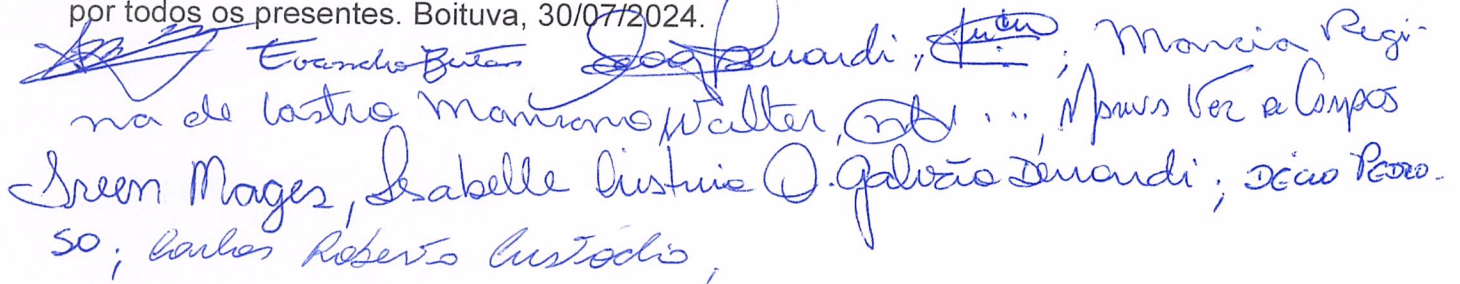 por todos os presentes. Boituva, 30/07/2024.
Evandro Denardi, ; Marcia Regi-
na de Castro Mariano Walter, ... , Marcus Vaz de Campos
Ireen Mages, Isabelle Cristina O. Galvão Denardi ; DÉCIO PEDRO-
SO ; Carlos Roberto Custódio,